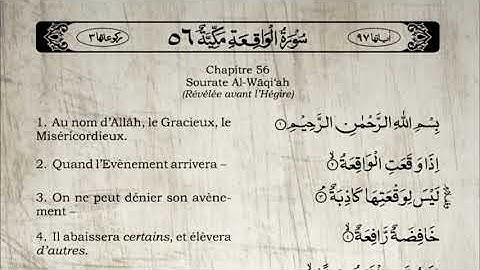 اٰيَاتُهَا ٩٧ سُوْرَةُ الْوَاقِعَةِ مَكِّيَّةٌ ٥٦ رُكُوْعَاتُهَا ٣
Chapitre 56
Sourate Al-Wāqi‘ah
(Révélée avant l’Hégire)
1. Au nom d’Allāh, le Gracieux, le
Miséricordieux.
بِسْمِ اللّٰهِ الرَّحْمٰنِ الرَّحِيْمِ ١
2. Quand l’Evènement arrivera –
اِذَا وَقَعَتِ الْوَاقِعَةُ ٢
3. On ne peut dénier son avène-
ment –
لَيْسَ لِوَقْعَتِهَا كَاذِبَةٌ ٣
4. Il abaissera certains, et élèvera
d’autres.
خَافِضَةٌ رَّافِعَةٌ ٤